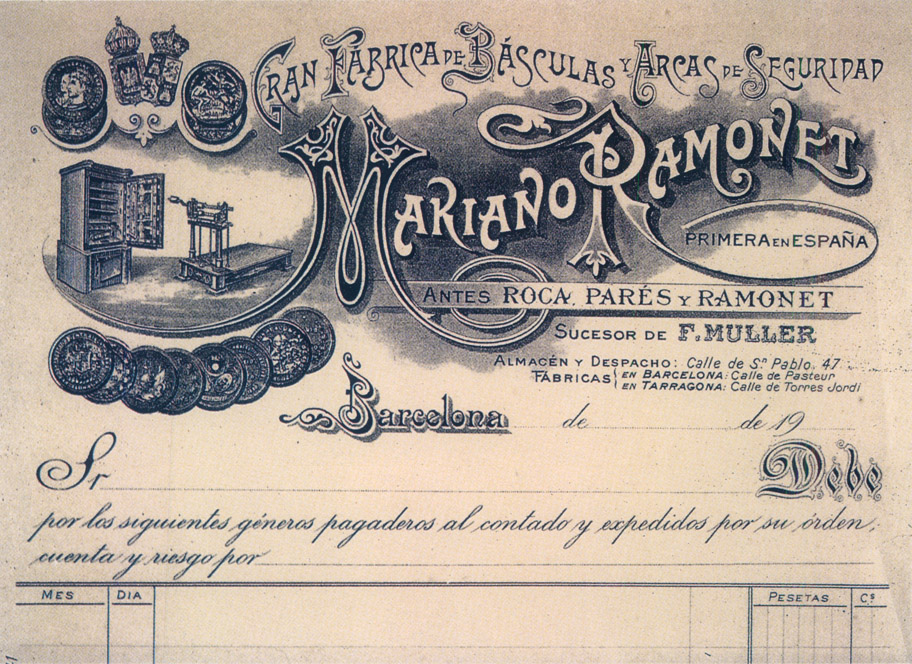 GRAN FÁBRICA DE BÁSCULAS Y ARCAS DE SEGURIDAD
MARIANO RAMONET
PRIMERA EN ESPAÑA
ANTES ROCA, PARÉS Y RAMONET
SUCESOR DE F. MULLER
ALMACÉN Y DESPACHO: Calle de Sn Pablo, 47
FÁBRICAS EN BARCELONA: Calle de Pasteur
EN TARRAGONA: Calle de Torres Jordi
Barcelona de de 19
Sr Debe
por los siguientes géneros pagaderos al contado y expedidos por su órden,
cuenta y riesgo por
MES DIA PESETAS Cs